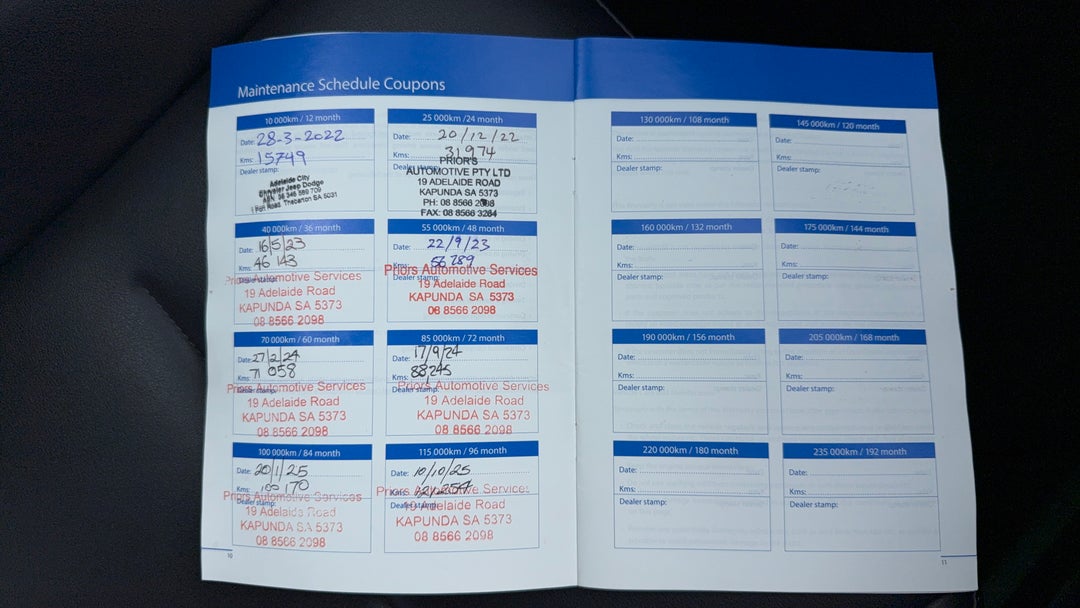 Maintenance Schedule Coupons
10 000km / 12 month
Date: 28-3-2022
Kms: 15749
Dealer stamp:
Adelaide City
Chrysler Jeep Dodge
ABN: 36 346 589 709
Port Road, Thebarton SA 5031
25 000km /24 month
Date: 20/12/22
Kms: 31974
Dealer stamp:
PRIOR'S
AUTOMOTIVE PTY LTD
19 ADELAIDE ROAD
KAPUNDA SA 5373
PH: 08 8566 2098
FAX: 08 8566 3264
40 000km / 36 month
Date: 16/5/23
Kms: 46 143
Dealer stamp:
Priors Automotive Services
19 Adelaide Road
KAPUNDA SA 5373
08 8566 2098
55 000km / 48 month
Date: 22/9/23
Kms: 56 289
Dealer stamp:
Priors Automotive Services
19 Adelaide Road
KAPUNDA SA 5373
08 8566 2098
70 000km / 60 month
Date: 27/2/24
Kms: 71 058
Dealer stamp:
Priors Automotive Services
19 Adelaide Road
KAPUNDA SA 5373
08 8566 2098
85 000km / 72 month
Date: 17/9/24
Kms: 88,245
Dealer stamp:
Priors Automotive Services
19 Adelaide Road
KAPUNDA SA 5373
08 8566 2098
100 000km / 84 month
Date: 20/1/25
Kms: 100 170
Dealer stamp:
Priors Automotive Services
19 Adelaide Road
KAPUNDA SA 5373
08 8566 2098
115 000km / 96 month
Date: 10/10/25
Kms:
Dealer stamp:
Priors Automotive Services
19 Adelaide Road
KAPUNDA SA 5373
08 8566 2098
10
130 000km / 108 month
Date:
Kms:
Dealer stamp:
145 000km / 120 month
Date:
Kms:
Dealer stamp:
160 000km / 132 month
Date:
Kms:
Dealer stamp:
175 000km / 144 month
Date:
Kms:
Dealer stamp:
190 000km / 156 month
Date:
Kms:
Dealer stamp:
205 000km / 168 month
Date:
Kms:
Dealer stamp:
220 000km / 180 month
Date:
Kms:
Dealer stamp:
235 000km / 192 month
Date:
Kms:
Dealer stamp:
11